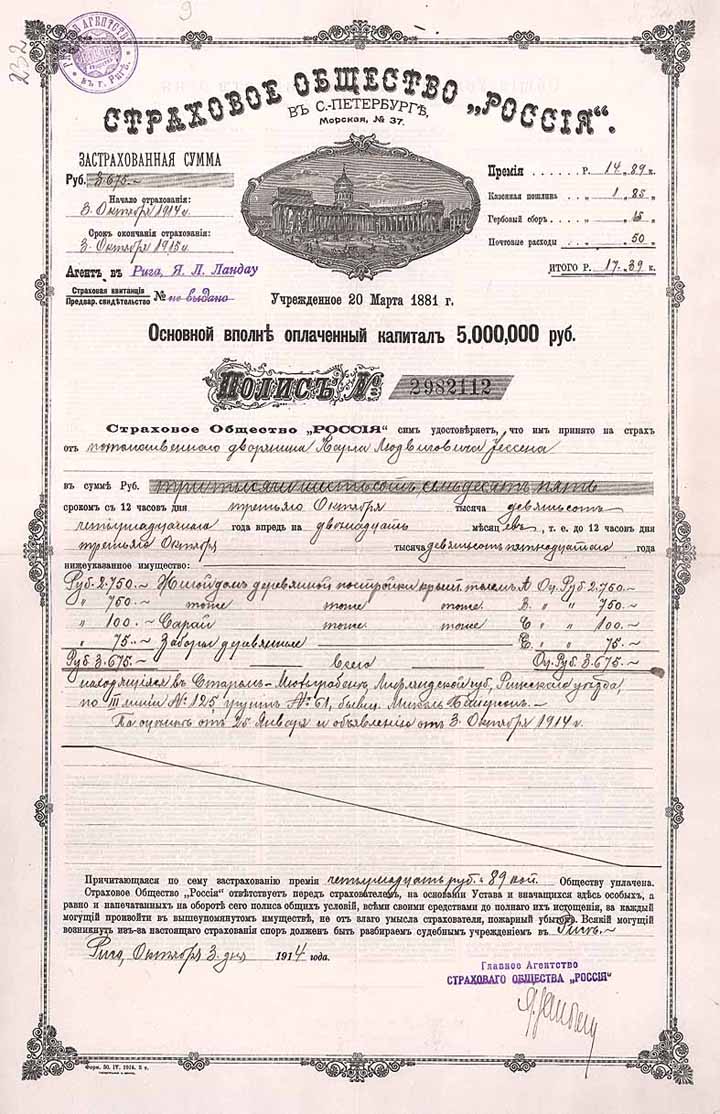 232
9
ГЛАВНОЕ АГЕНТСТВО
въ г. Ригѣ.
СТРАХОВОЕ ОБЩЕСТВО „РОССІЯ“.
ВЪ С.-ПЕТЕРБУРГѢ,
Морская, № 37.
ЗАСТРАХОВАННАЯ СУММА
Руб. 3.675.~
Начало страхованія:
3. Октября 1914 г.
Срокъ окончанія страхованія:
3. Октября 1915 г.
Агентъ въ Рига, Я. Л. Ландау
Страховая квитанція
Предвар. свидѣтельство № не выдано
Премія . . . . . . Р. 14.89 к.
Казенная пошлина . . . „ 1.85 „
Гербовый сборъ . . . „ 15 „
Почтовые расходы . . . . „ 50 „
ИТОГО Р. 17.39 к.
Учрежденное 20 Марта 1881 г.
Основной вполнѣ оплаченный капиталъ 5,000,000 руб.
Полисъ № 2982112
Страховое Общество „РОССІЯ“ симъ удостовѣряетъ, что имъ принято на страхъ
отъ потомственнаго дворянина Карла Людвиговича Іессена
въ суммѣ Руб. три тысячи шестьсотъ семьдесятъ пять
срокомъ съ 12 часовъ дня третьяго Октября тысяча девятьсотъ
четырнадцатаго года впредь на двѣнадцать мѣсяцевъ, т. е. до 12 часовъ дня
третьяго Октября тысяча девятьсотъ пятнадцатаго года
нижеуказанное имущество:
Руб. 2.750.~ Жилой домъ деревянной постройки крыт. толемъ А. Оц. Руб. 2.750.~
„ 750.~ тоже тоже тоже В. „ „ 750.~
„ 100.~ Сарай тоже тоже С. „ „ 100.~
„ 75.~ Заборы деревянные „ „ 75.~
Руб. 3.675.~ Всего Оц. Руб. 3.675.~
находящіяся въ Старомъ-Мюльграбенѣ, Лифляндской губ., Рижскаго уѣзда,
по III линіи № 125, группъ № 61, бывш.
По оцѣнкѣ отъ 25 Января и объявленію отъ 3. Октября 1914 г.
Причитающаяся по сему застрахованію премія четырнадцать руб. 89 коп. Обществу уплачена.
Страховое Общество „Россія“ отвѣтствуетъ передъ страхователемъ, на основаніи Устава и значащихся здѣсь особыхъ, а
равно и напечатанныхъ на оборотѣ сего полиса общихъ условій, всѣми своими средствами до полнаго ихъ истощенія, за каждый
могущій произойти въ вышеупомянутомъ имуществѣ, не отъ злаго умысла страхователя, пожарный убытокъ. Всякій могущій
возникнуть изъ-за настоящаго страхованія споръ долженъ быть разбираемъ судебнымъ учрежденіемъ въ Ригѣ.~
Рига, Октября 3. дня 1914 года.
Главное Агентство
СТРАХОВАГО ОБЩЕСТВА „РОССІЯ“
Форм. 30. IV. 1914. 2 т.